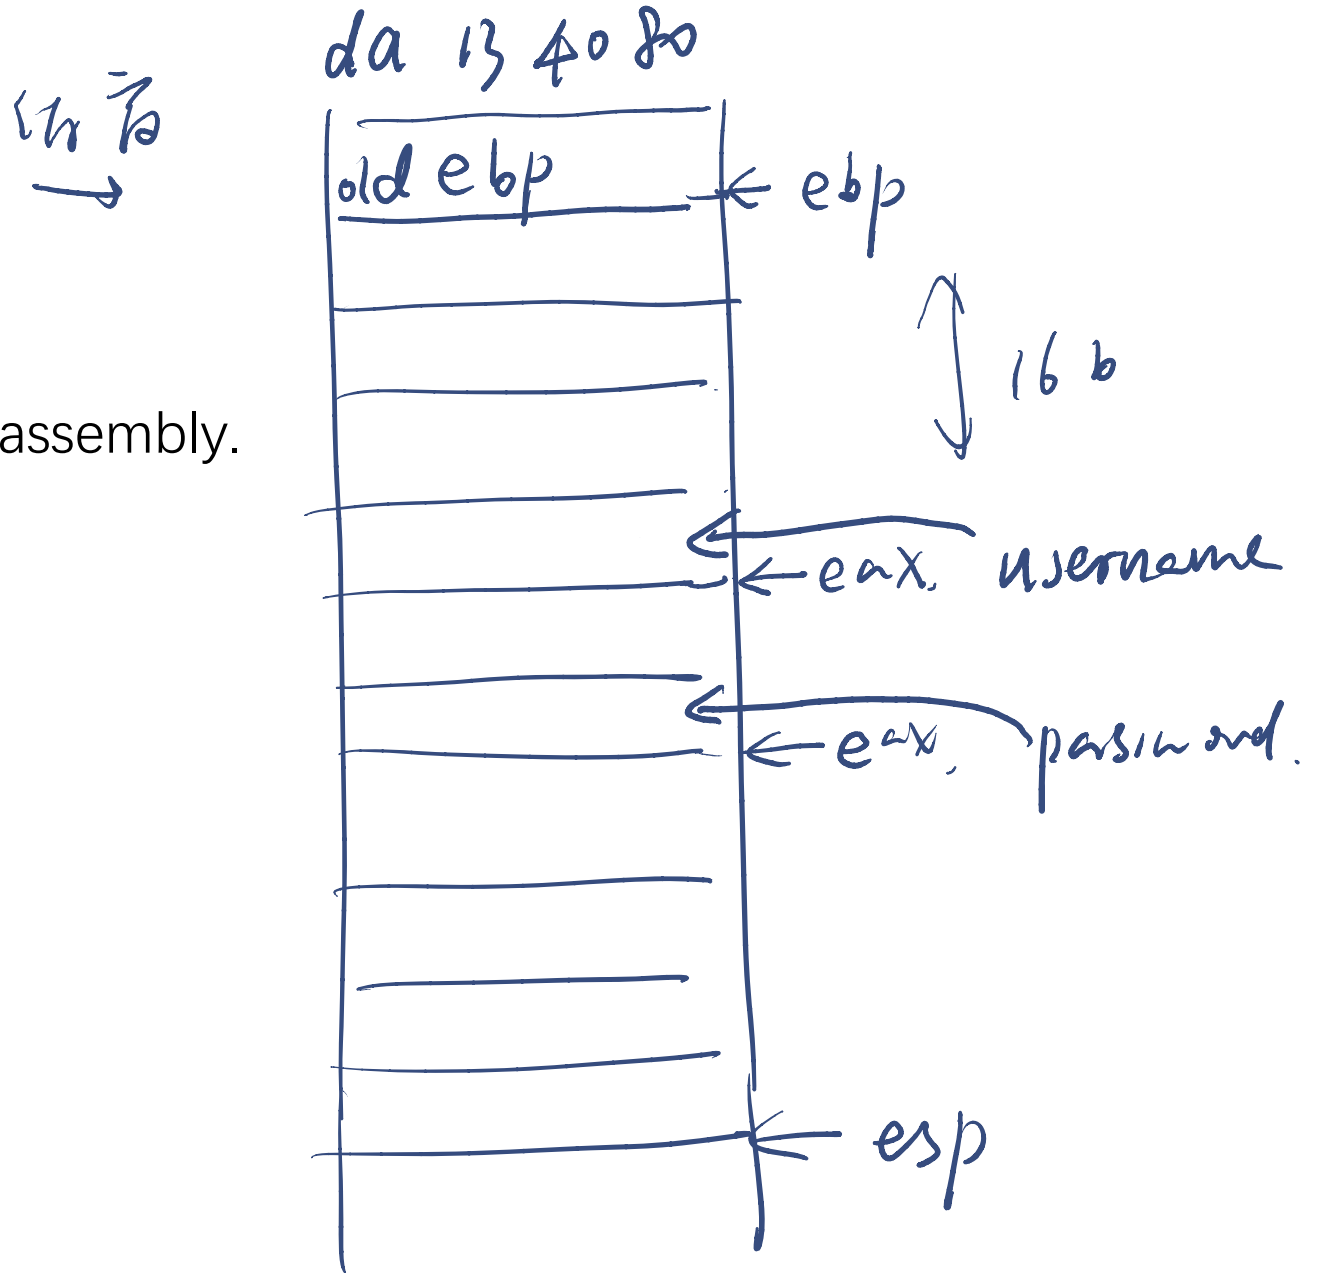 da 13 40 80
old ebp
ebp
16 b
assembly.
eax.
username
eax.
password.
esp